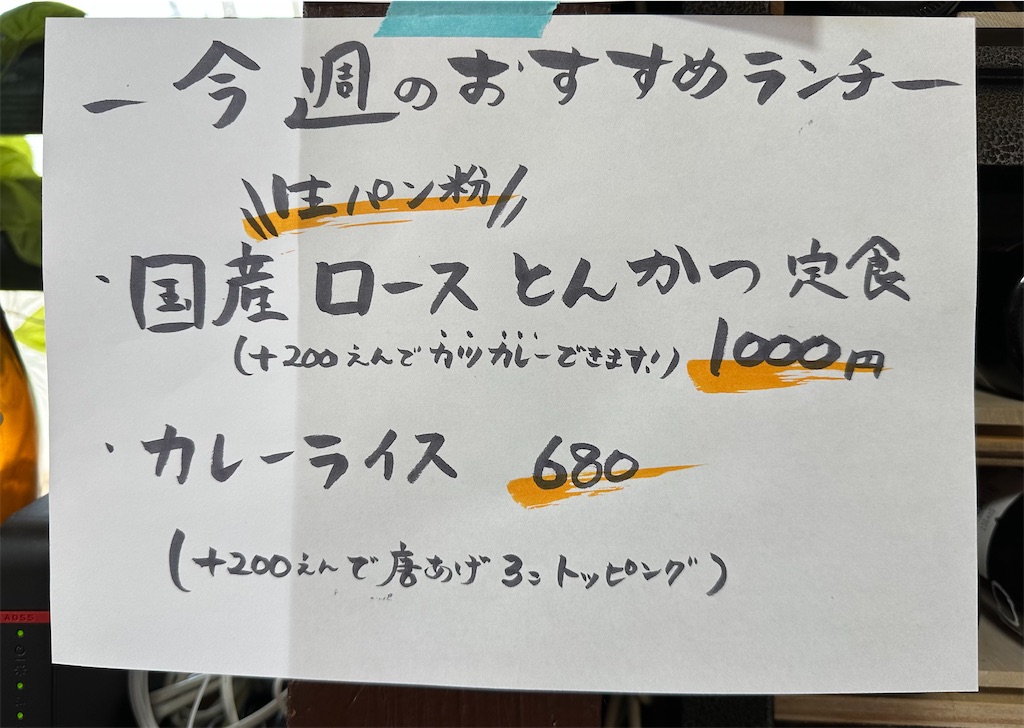 ー今週のおすすめランチー
\\生パン粉//
・国産ロースとんかつ定食
(+200えんでカツカレーできます!) 1000円
・カレーライス 680
(+200えんで唐あげ3コトッピング)
AOSS